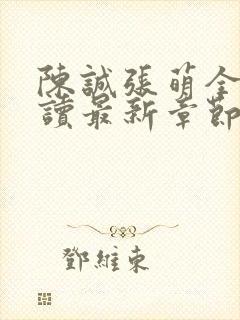 陳誠張萌全
讀最新章節
鄧維東